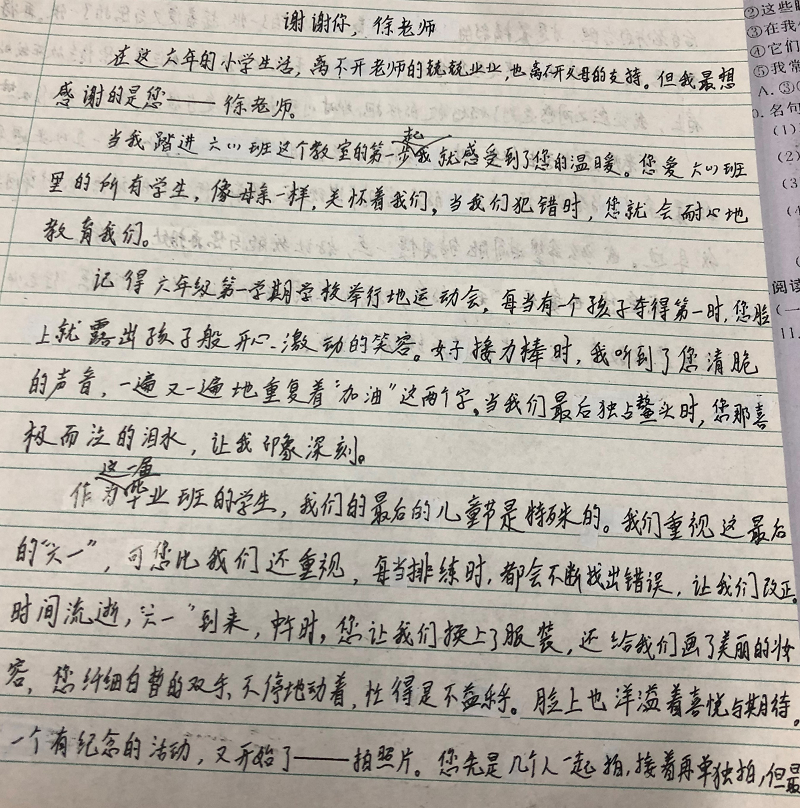 谢谢你，徐老师
在这六年的小学生活，离不开老师的兢兢业业，也离不开父母的支持。但我最想
感谢的是您——徐老师。
当我踏进六(1)班这个教室的第一步起我就感受到了您的温暖。您爱六(1)班
里的所有学生，像母亲一样，关怀着我们，当我们犯错时，您就会耐心地
教育我们。
记得六年级第一学期学校举行地运动会，每当有一个孩子夺得第一时，您脸
上就露出孩子般开心、激动的笑容。女子接力棒时，我听到了您清脆
的声音，一遍又一遍地重复着"加油"这两个字。当我们最后独占鳌头时，您那喜
极而泣的泪水，让我印象深刻。
作为这一届毕业班的学生，我们的最后的儿童节是特殊的。我们重视这最后
的"六一"，可您比我们还重视，每当排练时，都会不断找出错误，让我们改正。
时间流逝，"六一"到来，中午时，您让我们换上了服装，还给我们画了美丽的妆
容，您纤细白皙的双手，不停地动着，忙得是不亦乐乎。脸上也洋溢着喜悦与期待。
一个有纪念的活动，又开始了——拍照片。您先是几个人一起拍，接着再单独拍，但最
②这些
③在我
④它们
⑤我常
A.③
名句
(1)
(2)
(3
阅读
(一
11.